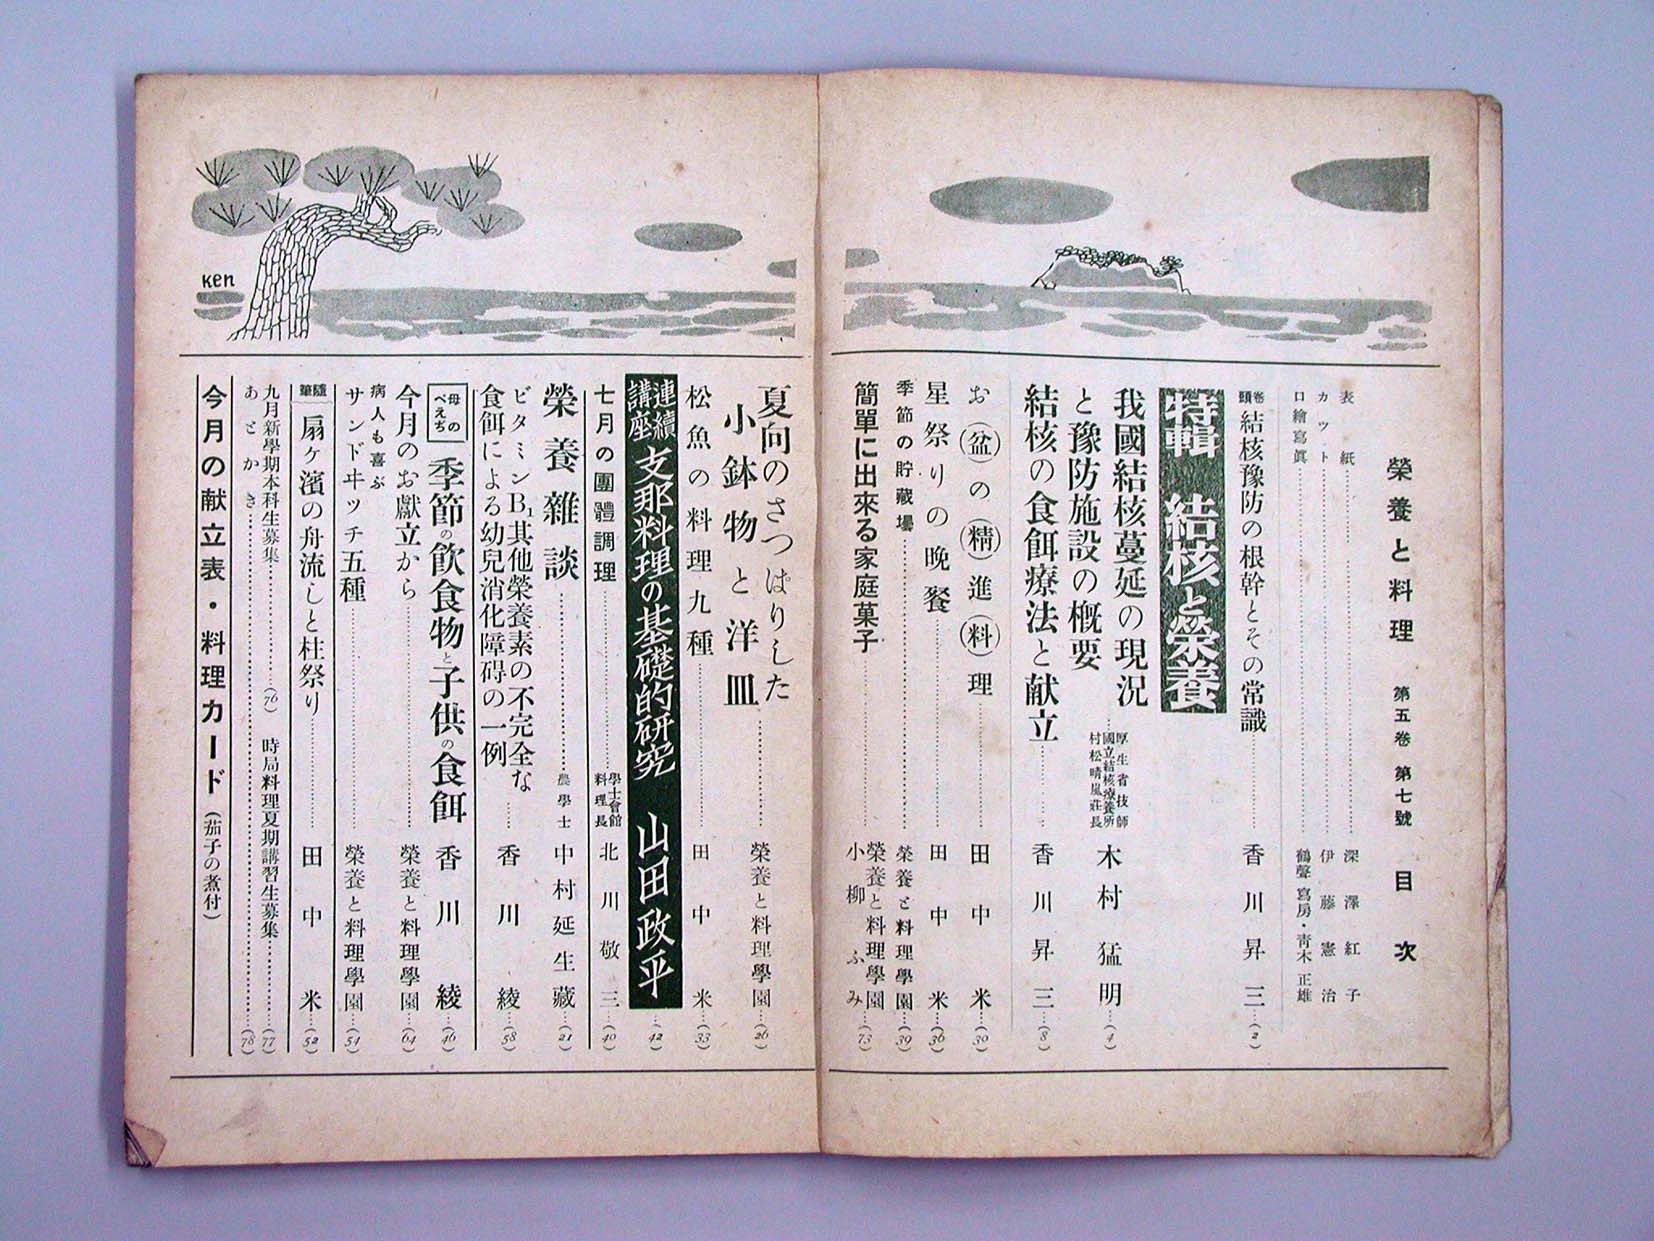 榮養と料理 第五卷 第七號 目次
表紙 深澤紅子
カット 伊藤憲治
口繪寫眞 鶴聲寫房・靑木正雄
卷頭 結核豫防の根幹とその常識 香川昇三 (2)
特輯 結核と榮養
我國結核蔓延の現況
と豫防施設の概要 厚生省技師 國立結核療養所 村松晴嵐莊長 木村猛明 (4)
結核の食餌療法と献立 香川昇三 (8)
お(盆)の(精)進(料)理 田中米 (30)
星祭りの晩餐 田中米 (36)
季節の貯藏場 榮養と料理學園 (39)
簡單に出來る家庭菓子 榮養と料理學園 小柳ふみ (73)
夏向のさつぱりした
小鉢物と洋皿 榮養と料理學園 (26)
松魚の料理九種 田中米 (33)
連續講座 支那料理の基礎的研究 山田政平 (42)
七月の團體調理 學士會館料理長 北川敬三 (40)
榮養雜談 農學士 中村延生藏 (21)
ビタミンB₁其他榮養素の不完全な
食餌による幼兒消化障碍の一例 香川綾 (58)
母のペえぢ 季節の飮食物と子供の食餌 香川綾 (46)
今月のお獻立から 榮養と料理學園 (64)
病人も喜ぶ
サンドヰッチ五種 榮養と料理學園 (54)
隨筆 扇ヶ濱の舟流しと柱祭り 田中米 (52)
九月新學期本科生募集 (76) 時局料理夏期講習生募集 (77)
あとかき (78)
今月の献立表・料理カード (茄子の煮付)
ken